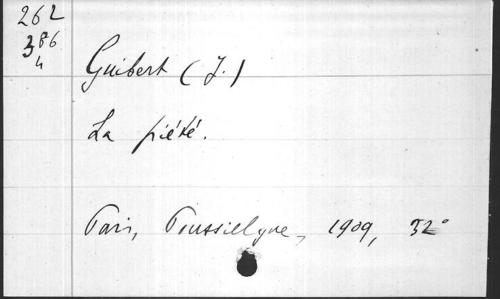 262
386
4
Guibert (J.)
La piété.
Paris, Poussielgue, 1909, 32°